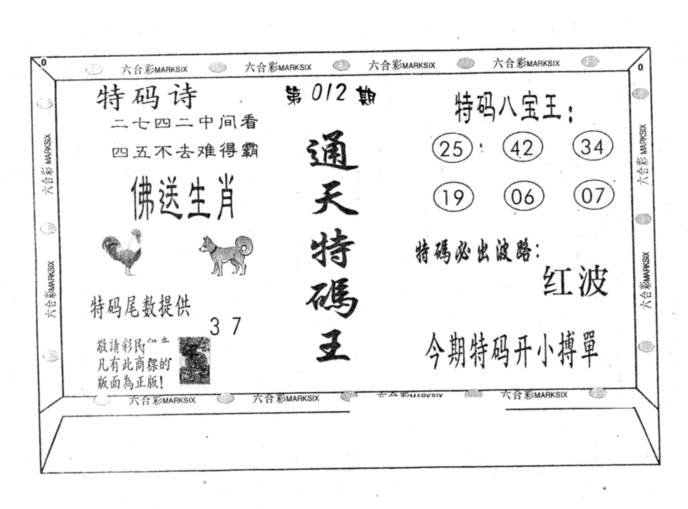 0 六合彩MARKSIX 六合彩MARKSIX 六合彩MARKSIX 六合彩MARKSIX 0
特码诗
二七四二中间看
四五不去难得霸
佛送生肖
特码尾数提供
3 7
敬請彩民
凡有此商標的
版面為正版!
第012期
通天特碼王
特码八宝王:
25 42 34
19 06 07
特碼必出波路:
红波
今期特码开小搏單
六合彩MARKSIX
六合彩MARKSIX
六合彩MARKSIX
六合彩MARKSIX
六合彩MARKSIX 六合彩MARKSIX 六合彩MARKSIX 六合彩MARKSIX